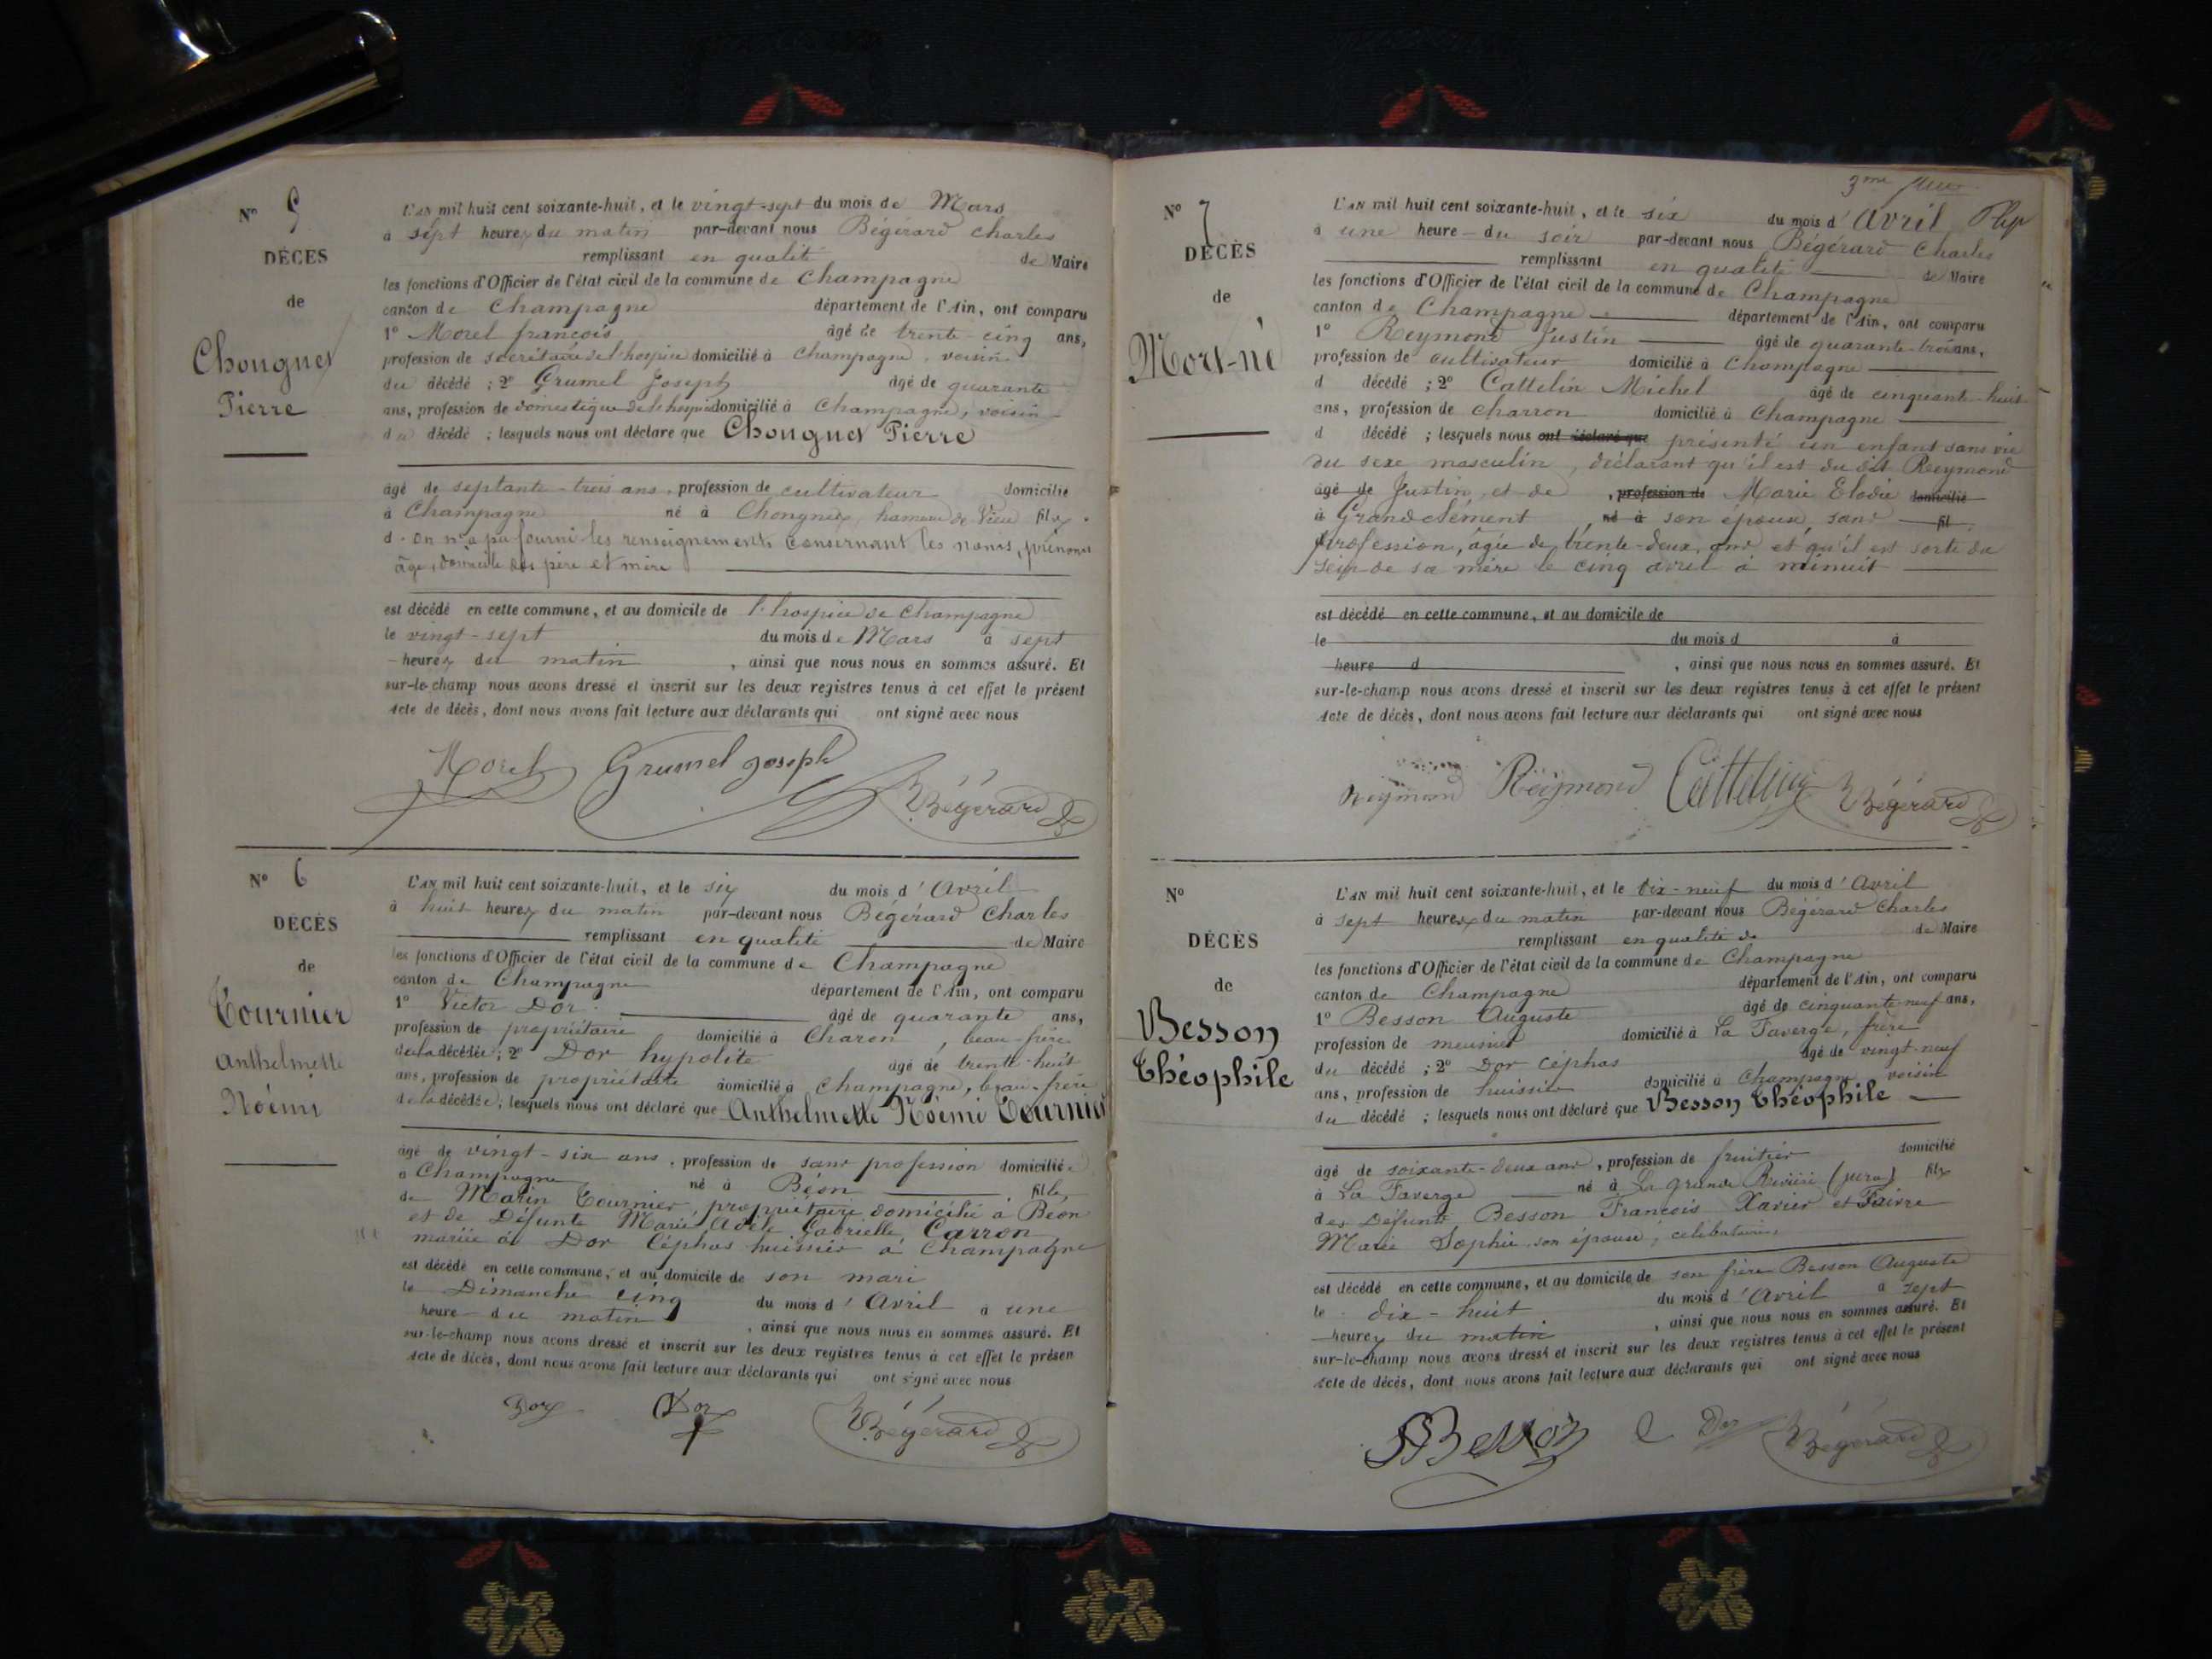 N° 5
DÉCÈS
de
Chougnet
Pierre
L'AN mil huit cent soixante-huit, et le vingt-sept du mois de Mars
à sept heures du matin par-devant nous Bégérard Charles
remplissant en qualité de Maire
les fonctions d'Officier de l'état civil de la commune de Champagne
canton de Champagne département de l'Ain, ont comparu
1° Morel françois âgé de trente-cinq ans,
profession de secrétaire de l'hospice domicilié à Champagne, voisin
du décédé ; 2° Grumel Joseph âgé de quarante
ans, profession de domestique de l'hospice domicilié à Champagne, voisin
du décédé ; lesquels nous ont déclaré que Chougnet Pierre
âgé de septante-trois ans, profession de cultivateur domicilié
à Champagne né à Chongnes, hameau de Vieu fils
d. On n'a pu fournir les renseignements consernant les noms, prénoms
âge, domicile des père et mère
est décédé en cette commune, et au domicile de l'hospice de Champagne
le vingt-sept du mois de Mars à sept
heures du matin, ainsi que nous nous en sommes assuré. Et
sur-le-champ nous avons dressé et inscrit sur les deux registres tenus à cet effet le présent
acte de décès, dont nous avons fait lecture aux déclarants qui ont signé avec nous
Morel Grumel Joseph Bégérard
N° 6
DÉCÈS
de
Tournier
Anthelmette
Noémi
L'AN mil huit cent soixante-huit, et le six du mois d'Avril
à huit heures du matin par-devant nous Bégérard Charles
remplissant en qualité de Maire
les fonctions d'Officier de l'état civil de la commune de Champagne
canton de Champagne département de l'Ain, ont comparu
1° Victor Dor âgé de quarante ans,
profession de propriétaire domicilié à Charon, beau-frère
de la décédée ; 2° Dor hypolite âgé de trente-huit
ans, profession de propriétaire domicilié à Champagne, beau-frère
de la décédée ; lesquels nous ont déclaré que Anthelmette Noémi Tournier
âgé de vingt-six ans, profession de sans profession domiciliée
à Champagne né à Béon fille
de Marin Tournier, propriétaire domicilié à Béon
et de Défunte Marie Adèle Gabrielle Carron
mariée à Dor Céphas huissier à Champagne
est décédé en cette commune, et au domicile de son mari
le Dimanche cinq du mois d'Avril à une
heure du matin, ainsi que nous nous en sommes assuré. Et
sur-le-champ nous avons dressé et inscrit sur les deux registres tenus à cet effet le présen
acte de décès, dont nous avons fait lecture aux déclarants qui ont signé avec nous
Dor Dor Bégérard
3me
N° 7
DÉCÈS
de
Mort-né
L'AN mil huit cent soixante-huit, et le six du mois d'Avril
à une heure du soir par-devant nous Bégérard Charles
remplissant en qualité de Maire
les fonctions d'Officier de l'état civil de la commune de Champagne
canton de Champagne département de l'Ain, ont comparu
1° Reymond Justin âgé de quarante-trois ans,
profession de cultivateur domicilié à Champagne
d décédé ; 2° Cattelin Michel âgé de cinquante-huit
ans, profession de charron domicilié à Champagne
d décédé ; lesquels nous ont déclaré que présenté un enfant sans vie
du sexe masculin, déclarant qu'il est du dit Reymond
âgé de Justin et de, profession de Marie Elodie domicilié
à Grandclément né à son épouse, sans fil
profession, âgée de trente-deux ans et qu'il est sorti du
sein de sa mère le cinq avril à minuit
est décédé en cette commune, et au domicile de
le du mois d à
heure d, ainsi que nous nous en sommes assuré. Et
sur-le-champ nous avons dressé et inscrit sur les deux registres tenus à cet effet le présent
acte de décès, dont nous avons fait lecture aux déclarants qui ont signé avec nous
Reymond Reymond Cattelin Bégérard
N°
DÉCÈS
de
Besson
Théophile
L'AN mil huit cent soixante-huit, et le dix-neuf du mois d'Avril
à sept heures du matin par-devant nous Bégérard Charles
remplissant en qualité de de Maire
les fonctions d'Officier de l'état civil de la commune de Champagne
canton de Champagne département de l'Ain, ont comparu
1° Besson Auguste âgé de cinquante-neuf ans,
profession de meunier domicilié à La Faverge, frère
du décédé ; 2° Dor Céphas âgé de vingt-neuf
ans, profession de huissier domicilié à Champagne voisin
du décédé ; lesquels nous ont déclaré que Besson Théophile
âgé de soixante-deux ans, profession de fruitier domicilié
à La Faverge né à La grande Rivière (jura) fils
des Défunts Besson François Xavier et Faivre
Marie Sophie son épouse, célibataire,
est décédé en cette commune, et au domicile de son frère Besson Auguste
le dix-huit du mois d'Avril à sept
heures du matin, ainsi que nous nous en sommes assuré. Et
sur-le-champ nous avons dressé et inscrit sur les deux registres tenus à cet effet le présent
acte de décès, dont nous avons fait lecture aux déclarants qui ont signé avec nous
Besson C Dor Bégérard